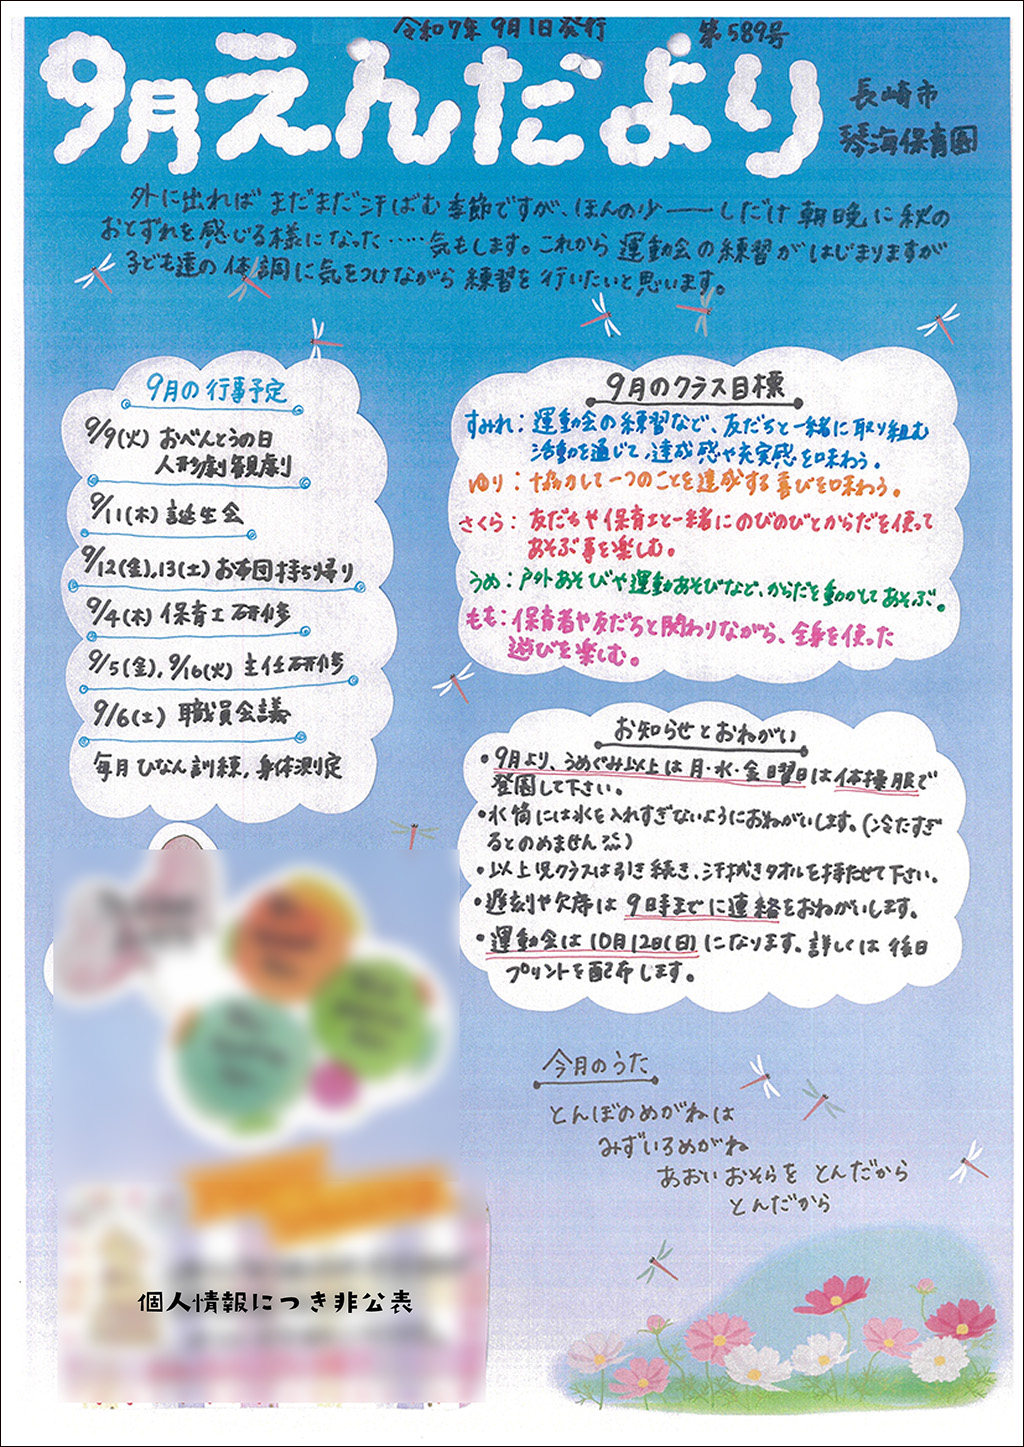 令和7年 9月1日発行 第589号
9月えんだより
長崎市
琴海保育園
外に出ればまだまだ汗ばむ季節ですが、ほんの少――しだけ朝晩に秋の
おとずれを感じる様になった……気もします。これから運動会の練習がはじまりますが
子ども達の体調に気をつけながら練習を行いたいと思います。
9月の行事予定
9/9(火) おべんとうの日
人形劇観劇
9/11(木) 誕生会
9/12(金),13(土) お布団持ち帰り
9/4(木) 保育士研修
9/5(金),9/16(火) 主任研修
9/6(土) 職員会議
毎月ひなん訓練,身体測定
9月のクラス目標
すみれ:運動会の練習など、友だちと一緒に取り組む
活動を通じて、達成感や充実感を味わう。
ゆり:協力して一つのことを達成する喜びを味わう。
さくら:友だちや保育士と一緒にのびのびとからだを使って
あそぶ事を楽しむ。
うめ:戸外あそびや運動あそびなど、からだを動かしてあそぶ。
もも:保育者や友だちと関わりながら、全身を使った
遊びを楽しむ。
お知らせとおねがい
・9月より、うめぐみ以上は月・水・金曜日は体操服で
登園して下さい。
・水筒には氷を入れすぎないようにおねがいします。(冷たすぎ
るとのめません)
・以上児クラスは引き続き、汗拭きタオルを持たせて下さい。
・遅刻や欠席は9時までに連絡をおねがいします。
・運動会は10月12日(日)になります。詳しくは後日
プリントを配布します。
今月のうた
とんぼのめがねは
みずいろめがね
あおいおそらを とんだから
とんだから
個人情報につき非公表